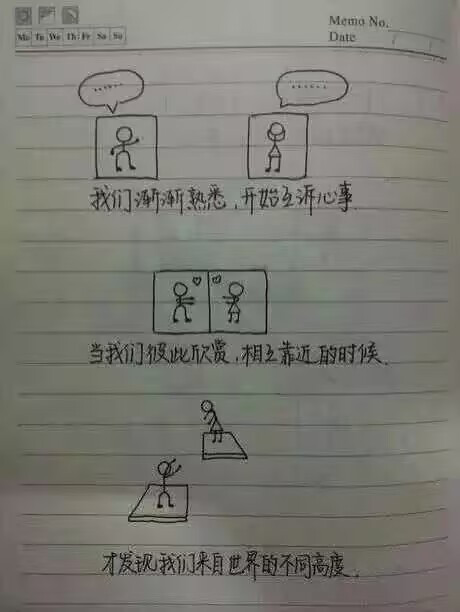 Memo No.
Mo Tu We Th Fr Sa Su
Date
......
......
我们渐渐熟悉，开始互诉心事.
当我们彼此欣赏，相互靠近的时候.
才发现我们来自世界的不同高度.